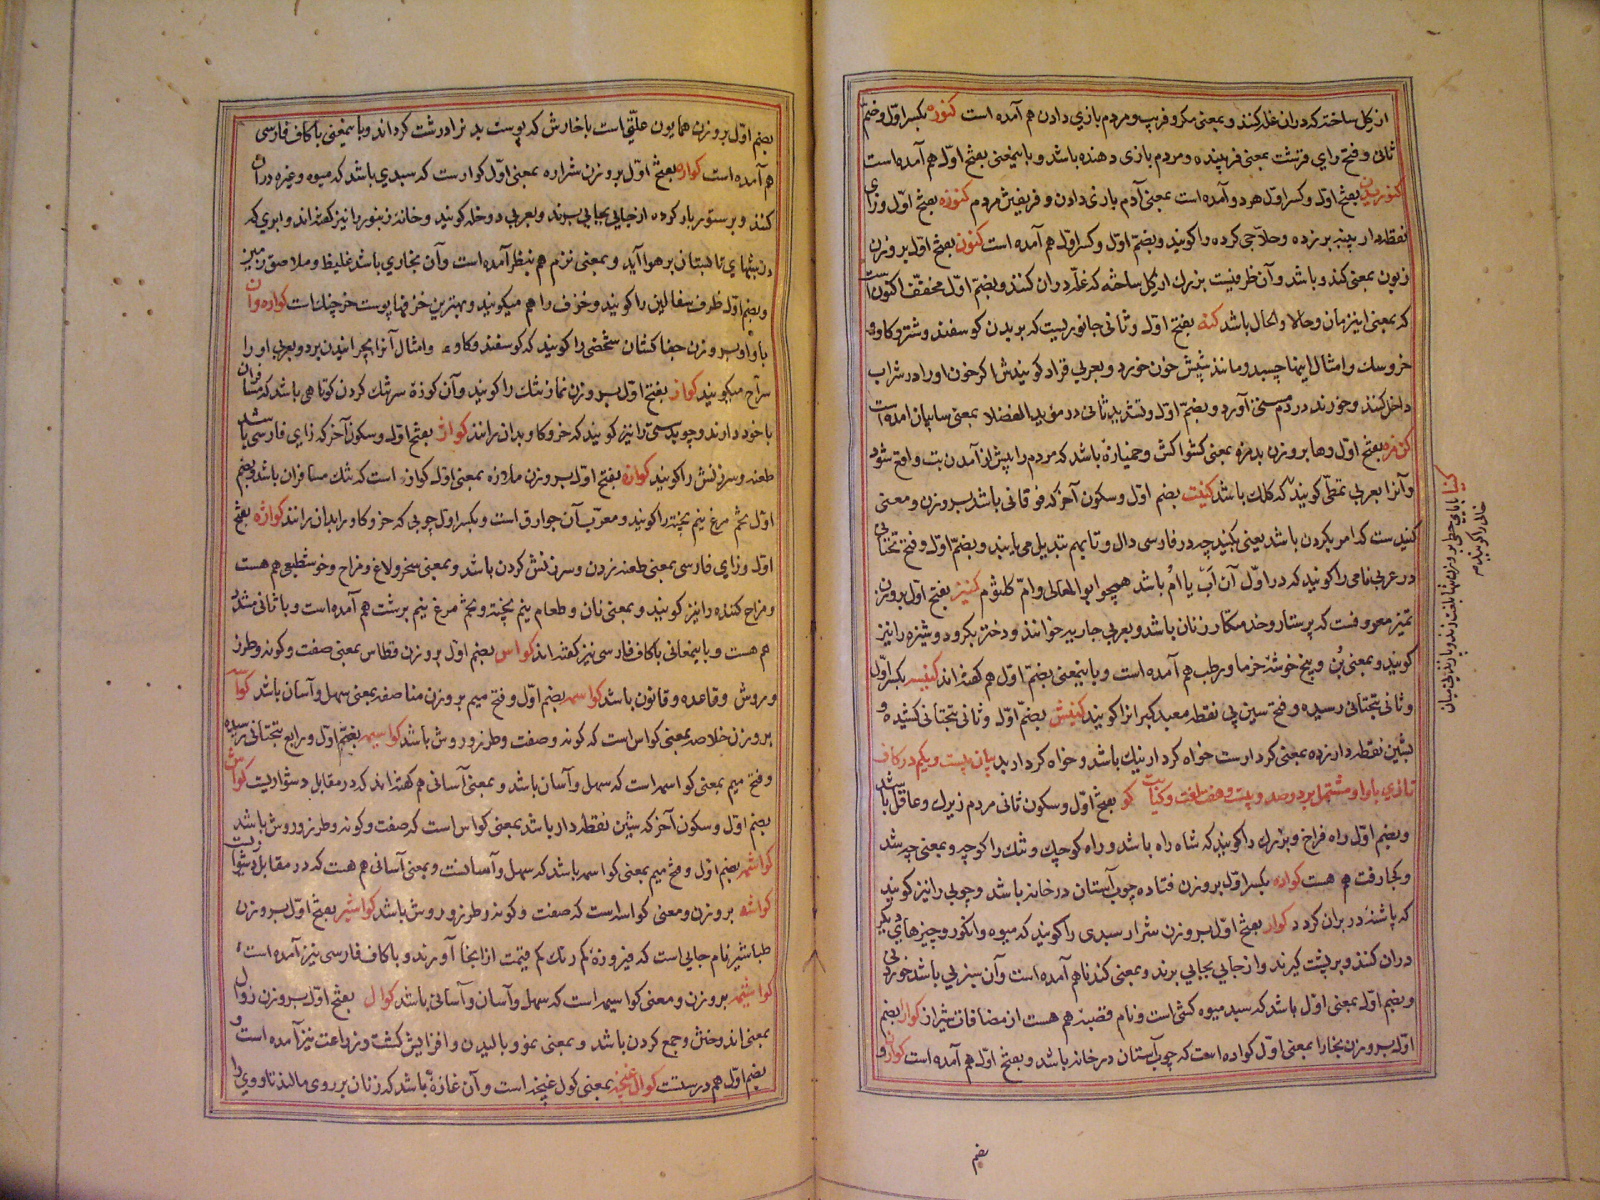 از گل ساخته که دران غله کنند و بمعنی مکر و فریب و مردم بازی دادن هم آمده است کنوره بکسر اول و ضم
ثانی و فتح رای قرشت بمعنی فریبنده و مردم بازی دهنده باشد و باین معنی بفتح اول هم آمده است
کنوریدن بفتح اول و کسر اول هر دو آمده است بمعنی آدم بازی دادن و فریفتن مردم کنوزه بفتح اول و زای
نقطه دار پنبه برزده و حلاجی کرده را گویند و بضم اول و کسر اول هم آمده است کنون بفتح اول بر وزن
زبون بمعنی کندو باشد و آن ظرفیست بزرگ از گل ساخته که غله دران کنند و بضم اول مخفف اکنون است
که بمعنی این زمان و حالا و الحال باشد کنه بفتح اول و ثانی جانوریست که بر بدن گوسفند و شتر و گاو و
خر و سگ و امثال اینها چسبد و مانند شپش خون خورد و بعربی قراد گویندش اگر خون او را در شراب
داخل کنند و خورند در دم مستی آورد و بضم اول و تشدید ثانی در مؤید الفضلا بمعنی سایبان آمده است
بفتح اول و ها بر وزن بدمزه بمعنی کش واکش و خمیازه باشد که مردم را پیش از آمدن تب واقع شود
و آنرا بعربی تمطی گویند کنیت بضم اول و سکون آخر که فوقانی باشد بر وزن و معنی
کنیدست که امر بکردن باشد یعنی بکنید چه در فارسی دال و تا بهم تبدیل می یابند و بضم اول و فتح تحتانی
در عربی نامی را گویند که در اول آن اب یا ام باشد همچو ابو المعالی و ام کلثوم کنیز بفتح اول بر وزن
تمیز معروفست که پرستار و خدمتکار زنان باشد و بعربی جاریه خوانند و دختر بکر و دوشیزه را نیز
گویند و بمعنی بن و بیخ خوشه خرما و رطب هم آمده است و باین معنی بضم اول هم گفته اند کنیسه بکسر اول
و ثانی بتحتانی رسیده و فتح سین بی نقطه معبد گبرانرا گویند کنیش بضم اول و ثانی بتحتانی کشیده و
بشین نقطه دار زده بمعنی کردارست خواه کردار نیک باشد و خواه کردار بد بیان بیست و یکم در کاف
تازی با واو مشتمل بر دوصد و بیست و هفت لغت و کنایت کو بفتح اول و سکون ثانی مردم زیرک و عاقل باشد
و بضم اول راه فراخ و بزرگ را گویند که شاه راه باشد و راه کوچک و تنگ را کوچه و بمعنی چه شد
و کجا رفت هم هست کواده بکسر اول بر وزن فتاده چوب آستان در خانه باشد و چوبی را نیز گویند
که پاشنه در بران گردد کوار بفتح اول بر وزن شرار سبدی را گویند که میوه و انگور و چیزهای دیگر
دران کنند و بر پشت گیرند و از جایی بجایی برند و بمعنی گندنا هم آمده است و آن سبزیی باشد خوردنی
و بضم اول بمعنی اول باشد که سبد میوه کشی است و نام قصبه هم هست از مضافات شیراز کوار بضم
اول بر وزن بخارا بمعنی اول کواده است که چوب آستان در خانه باشد و بفتح اول هم آمده است کواران
کنیا با یای حطی بر وزن تنها بلغت زند و پازند نی میان
خالی را گویند
بضم
بضم اول بر وزن همایون علتی است با خارش که پوست بدنرا درشت گرداند و باین معنی با کاف فارسی
هم آمده است کواره بفتح اول بر وزن شراره بمعنی اول کوارست که سبدی باشد که میوه و غیره دران
کنند و بر ستور بار کرده از جایی بجایی برند و بعربی دوخله گویند و خانه زنبور را نیز گفته اند و ابری که
در شبهای تابستان بر هوا آید و بمعنی نزم هم بنظر آمده است و آن بخاری باشد غلیظ و ملاصق زمین
و بضم اول ظرف سفالین را گویند و خزف را هم میگویند و بهترین خزفها پوست خرچنگ است کواره وان
با واو بر وزن جفا کشان شخصی را گویند که گوسفند و گاو و امثال آنرا بچرانیدن برد و بعربی او را
سراح میگویند کواز بفتح اول بر وزن نماز تنگ را گویند و آن کوزه سر تنگ گردن کوتاهی باشد که مسافران
با خود دارند و چوبدستی را نیز گویند که خر و گاو بدان رانند کواژ بفتح اول و سکون آخر که زای فارسی باشد
طعنه و سرزنش را گویند کوازه بفتح اول بر وزن ملازه بمعنی اول کواز است که تنگ مسافران باشد و بضم
اول تخم مرغ نیم پخته را گویند و معرب آن جوازق است و بکسر اول چوبی که خر و گاو را بدان رانند کواژه بفتح
اول و زای فارسی بمعنی طعنه زدن و سرزنش کردن باشد و بمعنی سخر و لاغ و مزاح و خوش طبعی هم هست
و مزاح کننده را نیز گویند و بمعنی نان و طعام نیم پخته و تخم مرغ نیم برشت هم آمده است و با ثانی مشدد
هم هست و باین معانی با کاف فارسی نیز گفته اند کواس بضم اول بر وزن قطاس بمعنی صفت و گونه و طرز
و روش و قاعده و قانون باشد کواسمه بضم اول و فتح میم بر وزن مناصفه بمعنی سهل و آسان باشد کواسه
بر وزن خلاصه بمعنی کواس است که گونه و صفت و طرز و روش باشد کواسیمه بضم اول و رابع بتحتانی رسیده
و فتح میم بمعنی کواسمه است که سهل و آسان باشد و بمعنی آسانی هم گفته اند که در مقابل دشواریست کواش
بضم اول و سکون آخر که شین نقطه دار باشد بمعنی کواس است که صفت و گونه و طرز و روش باشد
کواشمه بضم اول و فتح میم بمعنی کواسمه باشد که سهل و آسانست و بمعنی آسانی هم هست که در مقابل دشواریست
کواشه بر وزن و معنی کواسه است که صفت و گونه و طرز و روش باشد کواشیر بفتح اول بر وزن
طباشیر نام جایی است که فیروزه کم رنگ کم قیمت از انجا آورند و با کاف فارسی نیز آمده است
کواشیمه بر وزن و معنی کواسیمه است که سهل و آسان و آسانی باشد کوال بفتح اول بر وزن زوال
بمعنی اندوختن و جمع کردن باشد و بمعنی نمو و بالیدن و افزایش کشت و زراعت نیز آمده است و
بضم اول هم درستست کوال غنچه بمعنی کول غنچه است و آن غازه باشد که زنان بر روی مالند تا روی را